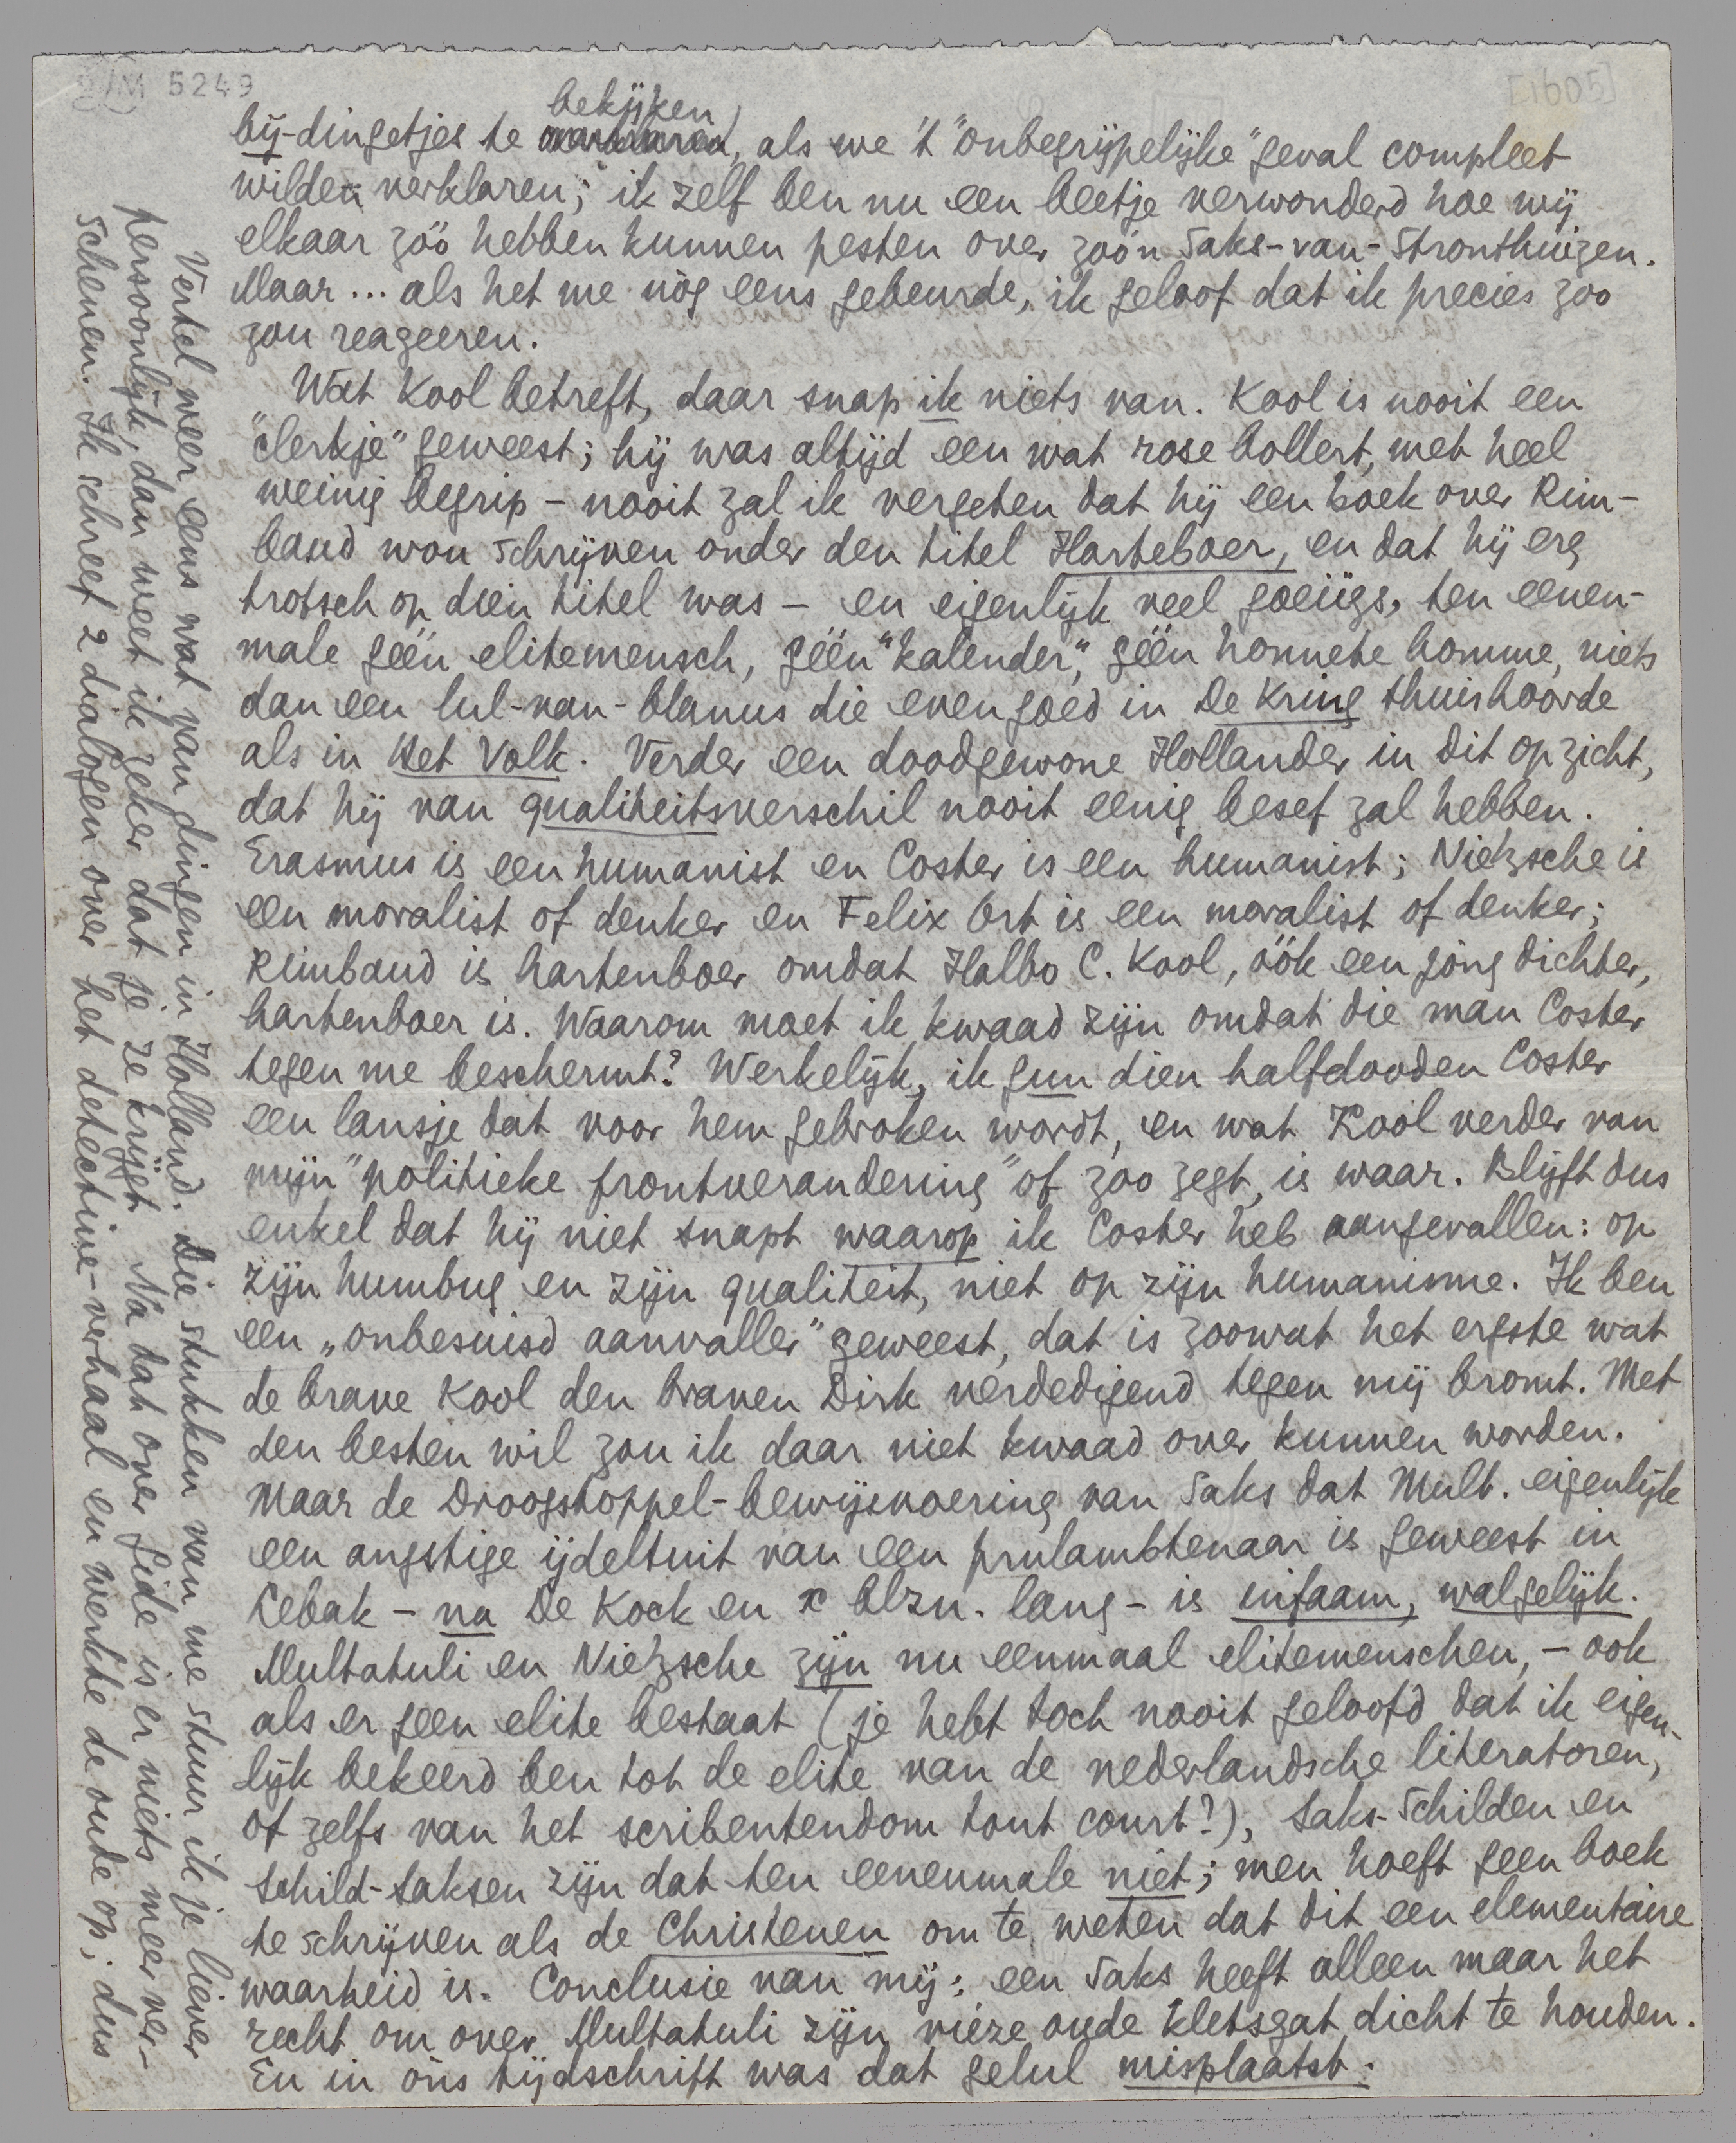 D/M 5249
[1605]
bekijken
bij-dingetjes te, als we 't "onbegrijpelijke" geval compleet
wilden verklaren; ik zelf ben nu een beetje verwonderd hoe wij
elkaar zóó hebben kunnen pesten over zoo'n Saks-van-Stronthuizen.
Maar... als het me nòg eens gebeurde, ik geloof dat ik precies zoo
zou reageeren.
Wat Kool betreft, daar snap ik niets van. Kool is nooit een
"clerkje" geweest; hij was altijd een wat rose bollert, met heel
weinig begrip – nooit zal ik vergeten dat hij een boek over Rim-
baud wou schrijven onder den titel Harteboer, en dat hij erg
trotsch op dien titel was – en eigenlijk veel goeiigs, ten eenen-
male géén elitemensch, géén "kalender", géén honnete homme, niets
dan een lul-van-blanus die even goed in De Kring thuishoorde
als in Het Volk. Verder een doodgewone Hollander in dit opzicht,
dat hij van qualiteitsverschil nooit eenig besef zal hebben.
Erasmus is een humanist en Coster is een humanist; Nietzsche is
een moralist of denker en Felix Ort is een moralist of denker;
Rimbaud is hartenboer omdat Halbo C. Kool, óók een jong dichter,
hartenboer is. Waarom moet ik kwaad zijn omdat die man Coster
tegen me beschermt? Werkelijk, ik gun dien halfdooden Coster
een lansje dat voor hem gebroken wordt, en wat Kool verder van
mijn "politieke frontverandering" of zoo zegt, is waar. Blijft dus
enkel dat hij niet snapt waarop ik Coster heb aangevallen: op
zijn humbug en zijn qualiteit, niet op zijn humanisme. Ik ben
een „onbesuisd aanvaller" geweest, dat is zoowat het ergste wat
de brave Kool den braven Dirk verdedigend tegen mij bromt. Met
den besten wil zou ik daar niet kwaad over kunnen worden.
Maar de Droogstoppel-bewijsvoering van Saks dat Mult. eigenlijk
een angstige ijdeltuit van een prulambtenaar is geweest in
Lebak – na De Kock en x blzn. lang – is infaam, walgelijk.
Multatuli en Nietzsche zijn nu eenmaal elitemenschen, – ook
als er geen elite bestaat (je hebt toch nooit geloofd dat ik eigen-
lijk bekeerd ben tot de elite van de nederlandsche literatoren,
of zelfs van het scribentendom tout court?), Saks-Schilden en
Schild-Saksen zijn dat ten eenenmale niet; men hoeft geen boek
te schrijven als de Christenen om te weten dat dit een elementaire
waarheid is. Conclusie van mij: een Saks heeft alleen maar het
recht om over Multatuli zijn vieze oude kletsgat dicht te houden.
En in óns tijdschrift was dat gelul misplaatst.
Vertel weer eens wat van dingen in Holland. Die stukken van me stuur ik je liever
persoonlijk, dan weet ik zeker dat je ze krijgt. Na dat over Gide is er niets meer ver-
schenen. Ik schreef 2 dialogen over het detective-verhaal en werkte de oude op; dus